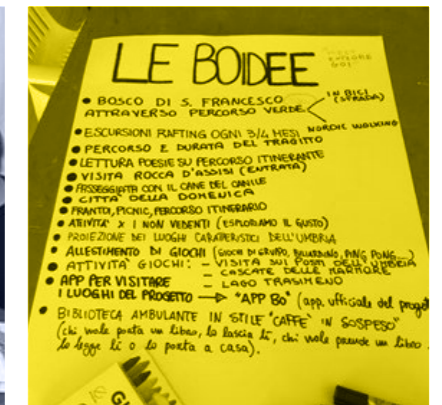 LE BOIDEE
• BOSCO DI S. FRANCESCO
ATTRAVERSO PERCORSO VERDE
IN BICI
(STRADA)
NORDIC WALKING
• ESCURSIONI RAFTING OGNI 3/4 MESI
• PERCORSO E DURATA DEL TRAGITTO
• LETTURA POESIE SU PERCORSO ITINERANTE
• VISITA ROCCA D'ASSISI (ENTRATA)
• PASSEGGIATA CON IL CANE DEL CANILE
• CITTA' DELLA DOMENICA
• FRANTOI, PICNIC, PERCORSO ITINERARIO
• ATIVITA' X I NON VEDENTI (ESPLORIAMO IL GUSTO)
• PROIEZIONE DEI LUOGHI CARATERISTICI DELL'UMBRIA
• ALLESTIMENTO DI GIOCHI (GIOCHI DI GRUPO, BILIARDINO, PING PONG...)
• ATTIVITA' GIOCHI: - VISITA SUI POSTI DELL'UMBRIA
- CASCATE DELLE MARMORE
- LAGO TRASIMENO
• APP PER VISITARE
I LUOGHI DEL PROGETTO → "APP BO" (app. ufficiale del proget
• BIBLIOTECA AMBULANTE IN STILE "CAFFE' IN SOSPESO"
(chi vuole porta un libro, lo lascia lì, chi vuole prende un libro
lo legge lì o lo porta a casa).